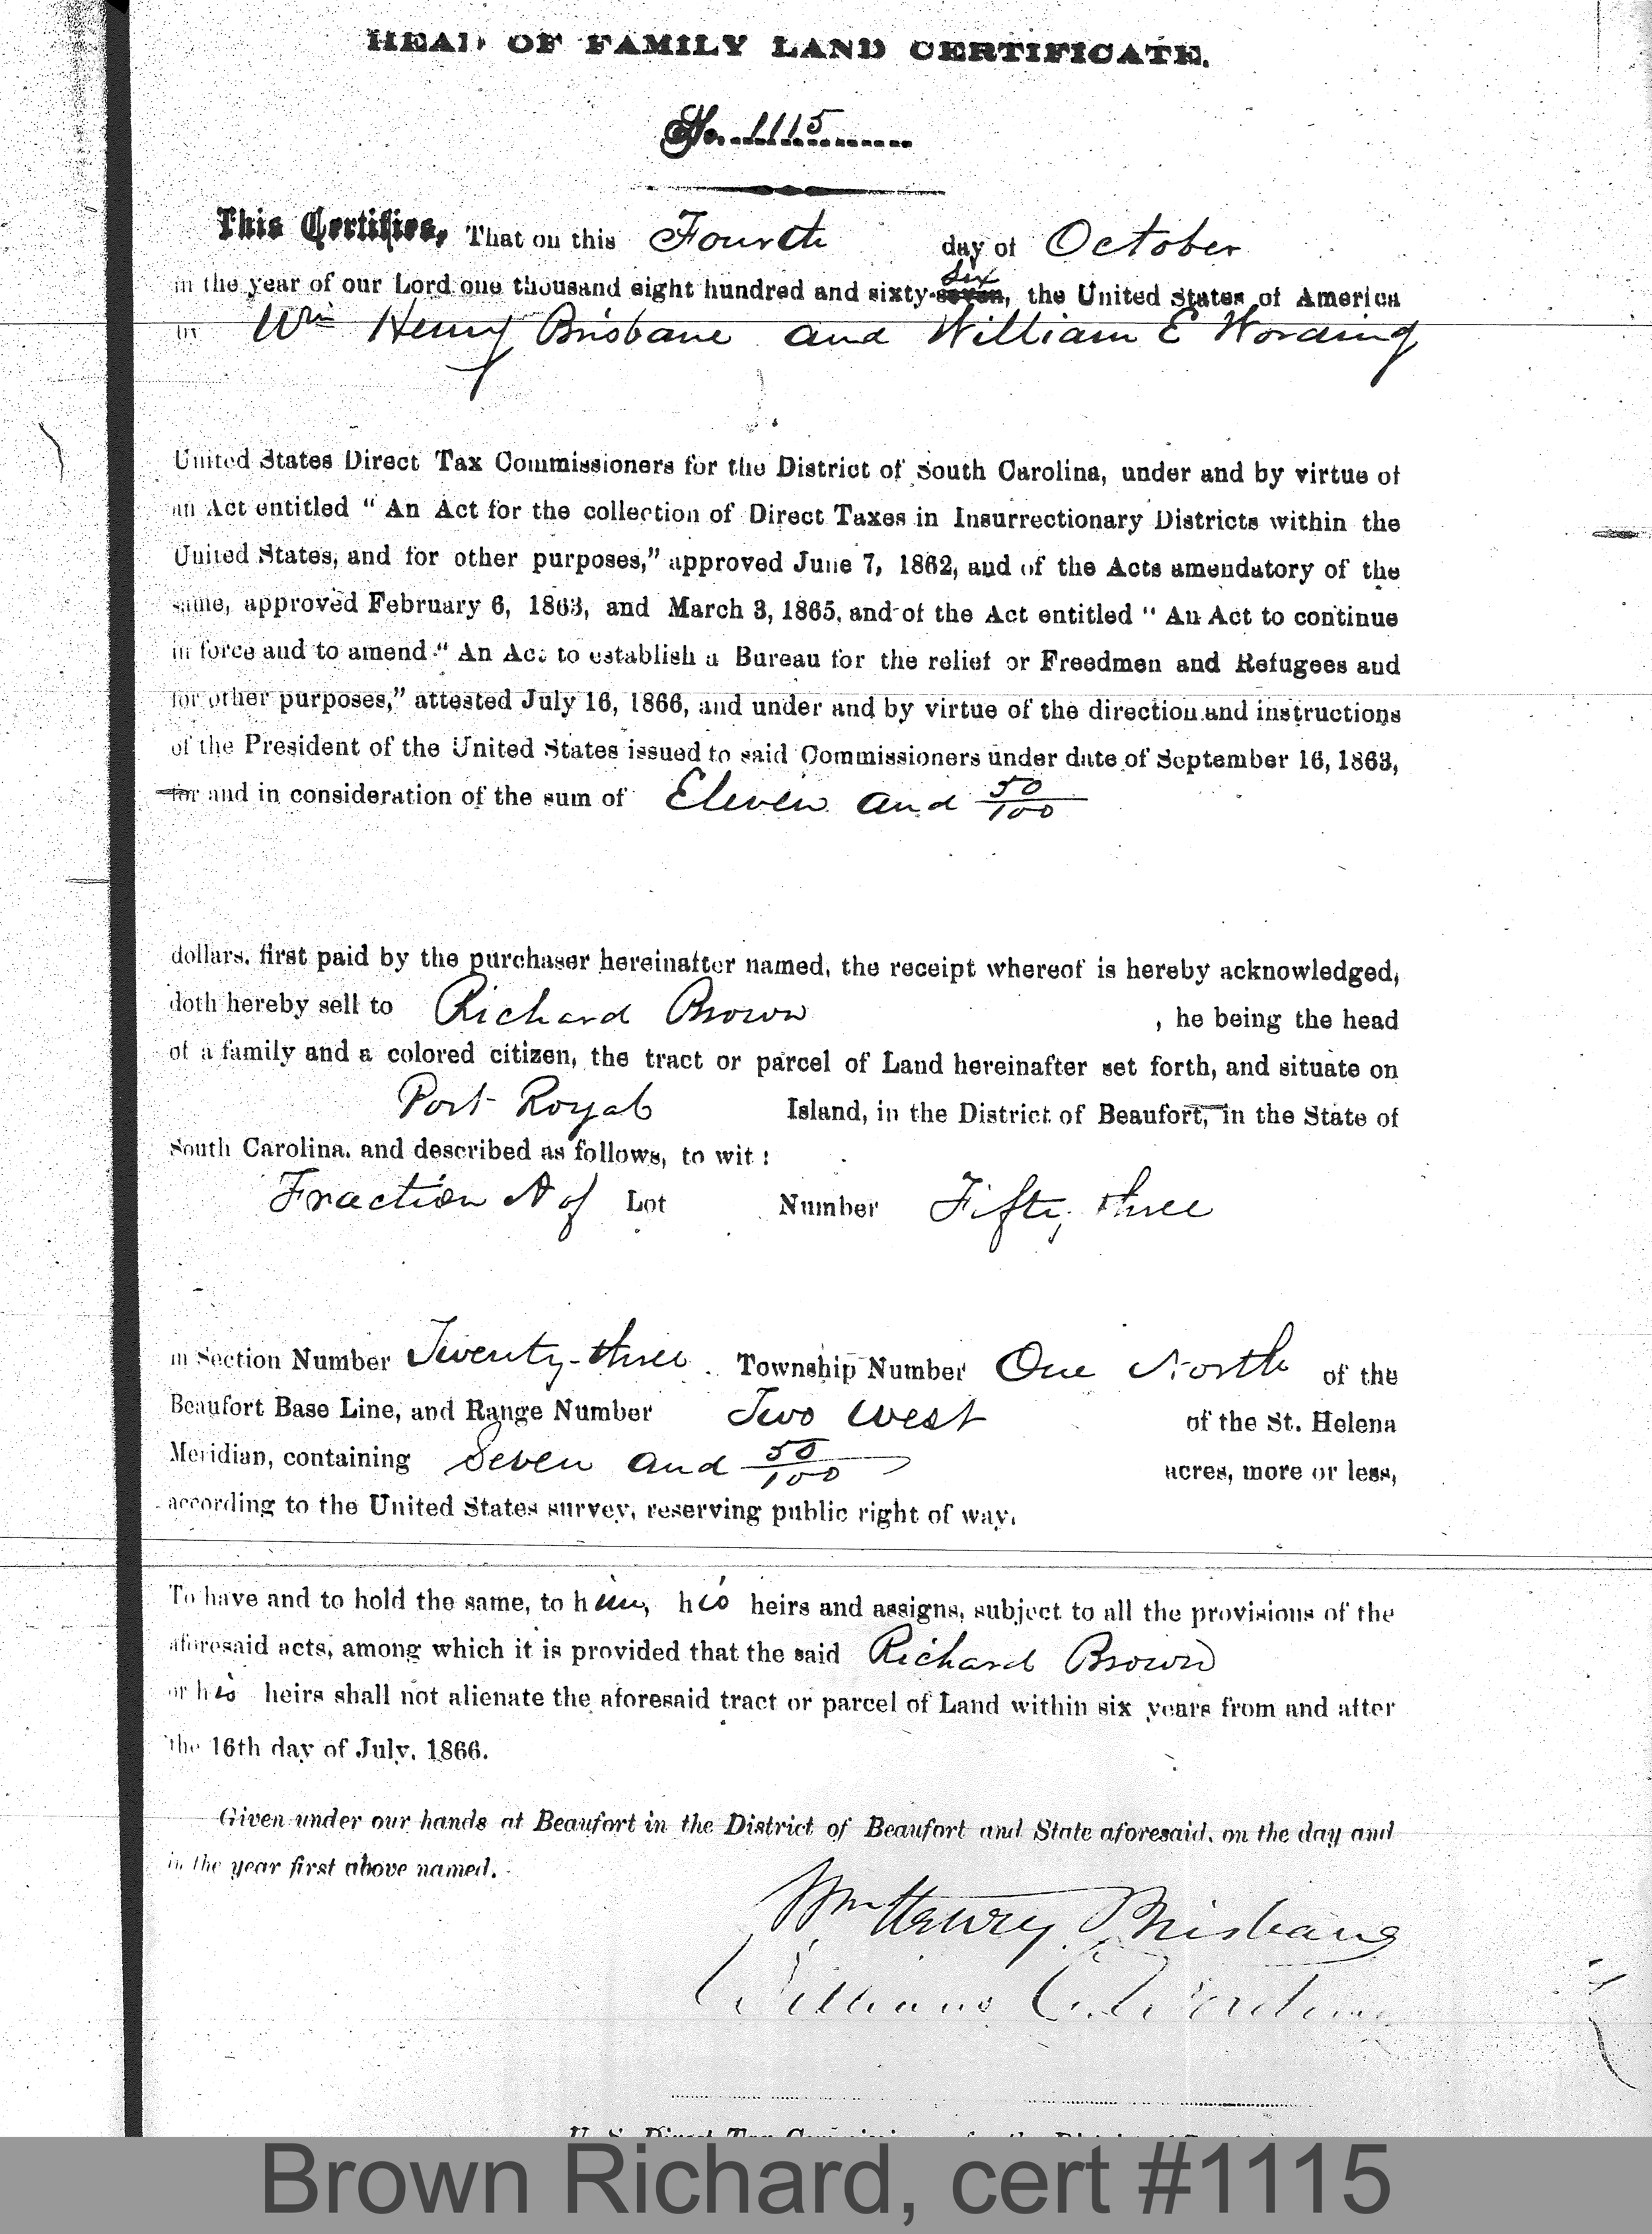 HEAD OF FAMILY LAND CERTIFICATE.
No. 1115
This Certifies, That on this Fourth day of October
in the year of our Lord one thousand eight hundred and sixty-seven six, the United States of America
by Wm Henry Brisbane and William E Wording
United States Direct Tax Commissioners for the District of South Carolina, under and by virtue of
an Act entitled “ An Act for the collection of Direct Taxes in Insurrectionary Districts within the
United States, and for other purposes,” approved June 7, 1862, and of the Acts amendatory of the
same, approved February 6, 1863, and March 3, 1865, and of the Act entitled “ An Act to continue
in force and to amend “ An Act to establish a Bureau for the relief or Freedmen and Refugees and
for other purposes,” attested July 16, 1866, and under and by virtue of the direction and instructions
of the President of the United States issued to said Commissioners under date of September 16, 1863,
for and in consideration of the sum of Eleven and 50/100
dollars, first paid by the purchaser hereinafter named, the receipt whereof is hereby acknowledged,
doth hereby sell to Richard Brown , he being the head
of a family and a colored citizen, the tract or parcel of Land hereinafter set forth, and situate on
Port Royal Island, in the District of Beaufort, in the State of
South Carolina, and described as follows, to wit :
Fraction A of Lot Number Fifty three
in Section Number Twenty-three Township Number One North of the
Beaufort Base Line, and Range Number Two West of the St. Helena
Meridian, containing Seven and 50/100 acres, more or less,
according to the United States survey, reserving public right of way.
To have and to hold the same, to him, his heirs and assigns, subject to all the provisions of the
aforesaid acts, among which it is provided that the said Richard Brown
or his heirs shall not alienate the aforesaid tract or parcel of Land within six years from and after
the 16th day of July, 1866.
Given under our hands at Beaufort in the District of Beaufort and State aforesaid, on the day and
in the year first above named.
Wm Henry Brisbane
William E. Wording
U. S. Direct Tax
Brown Richard, cert #1115